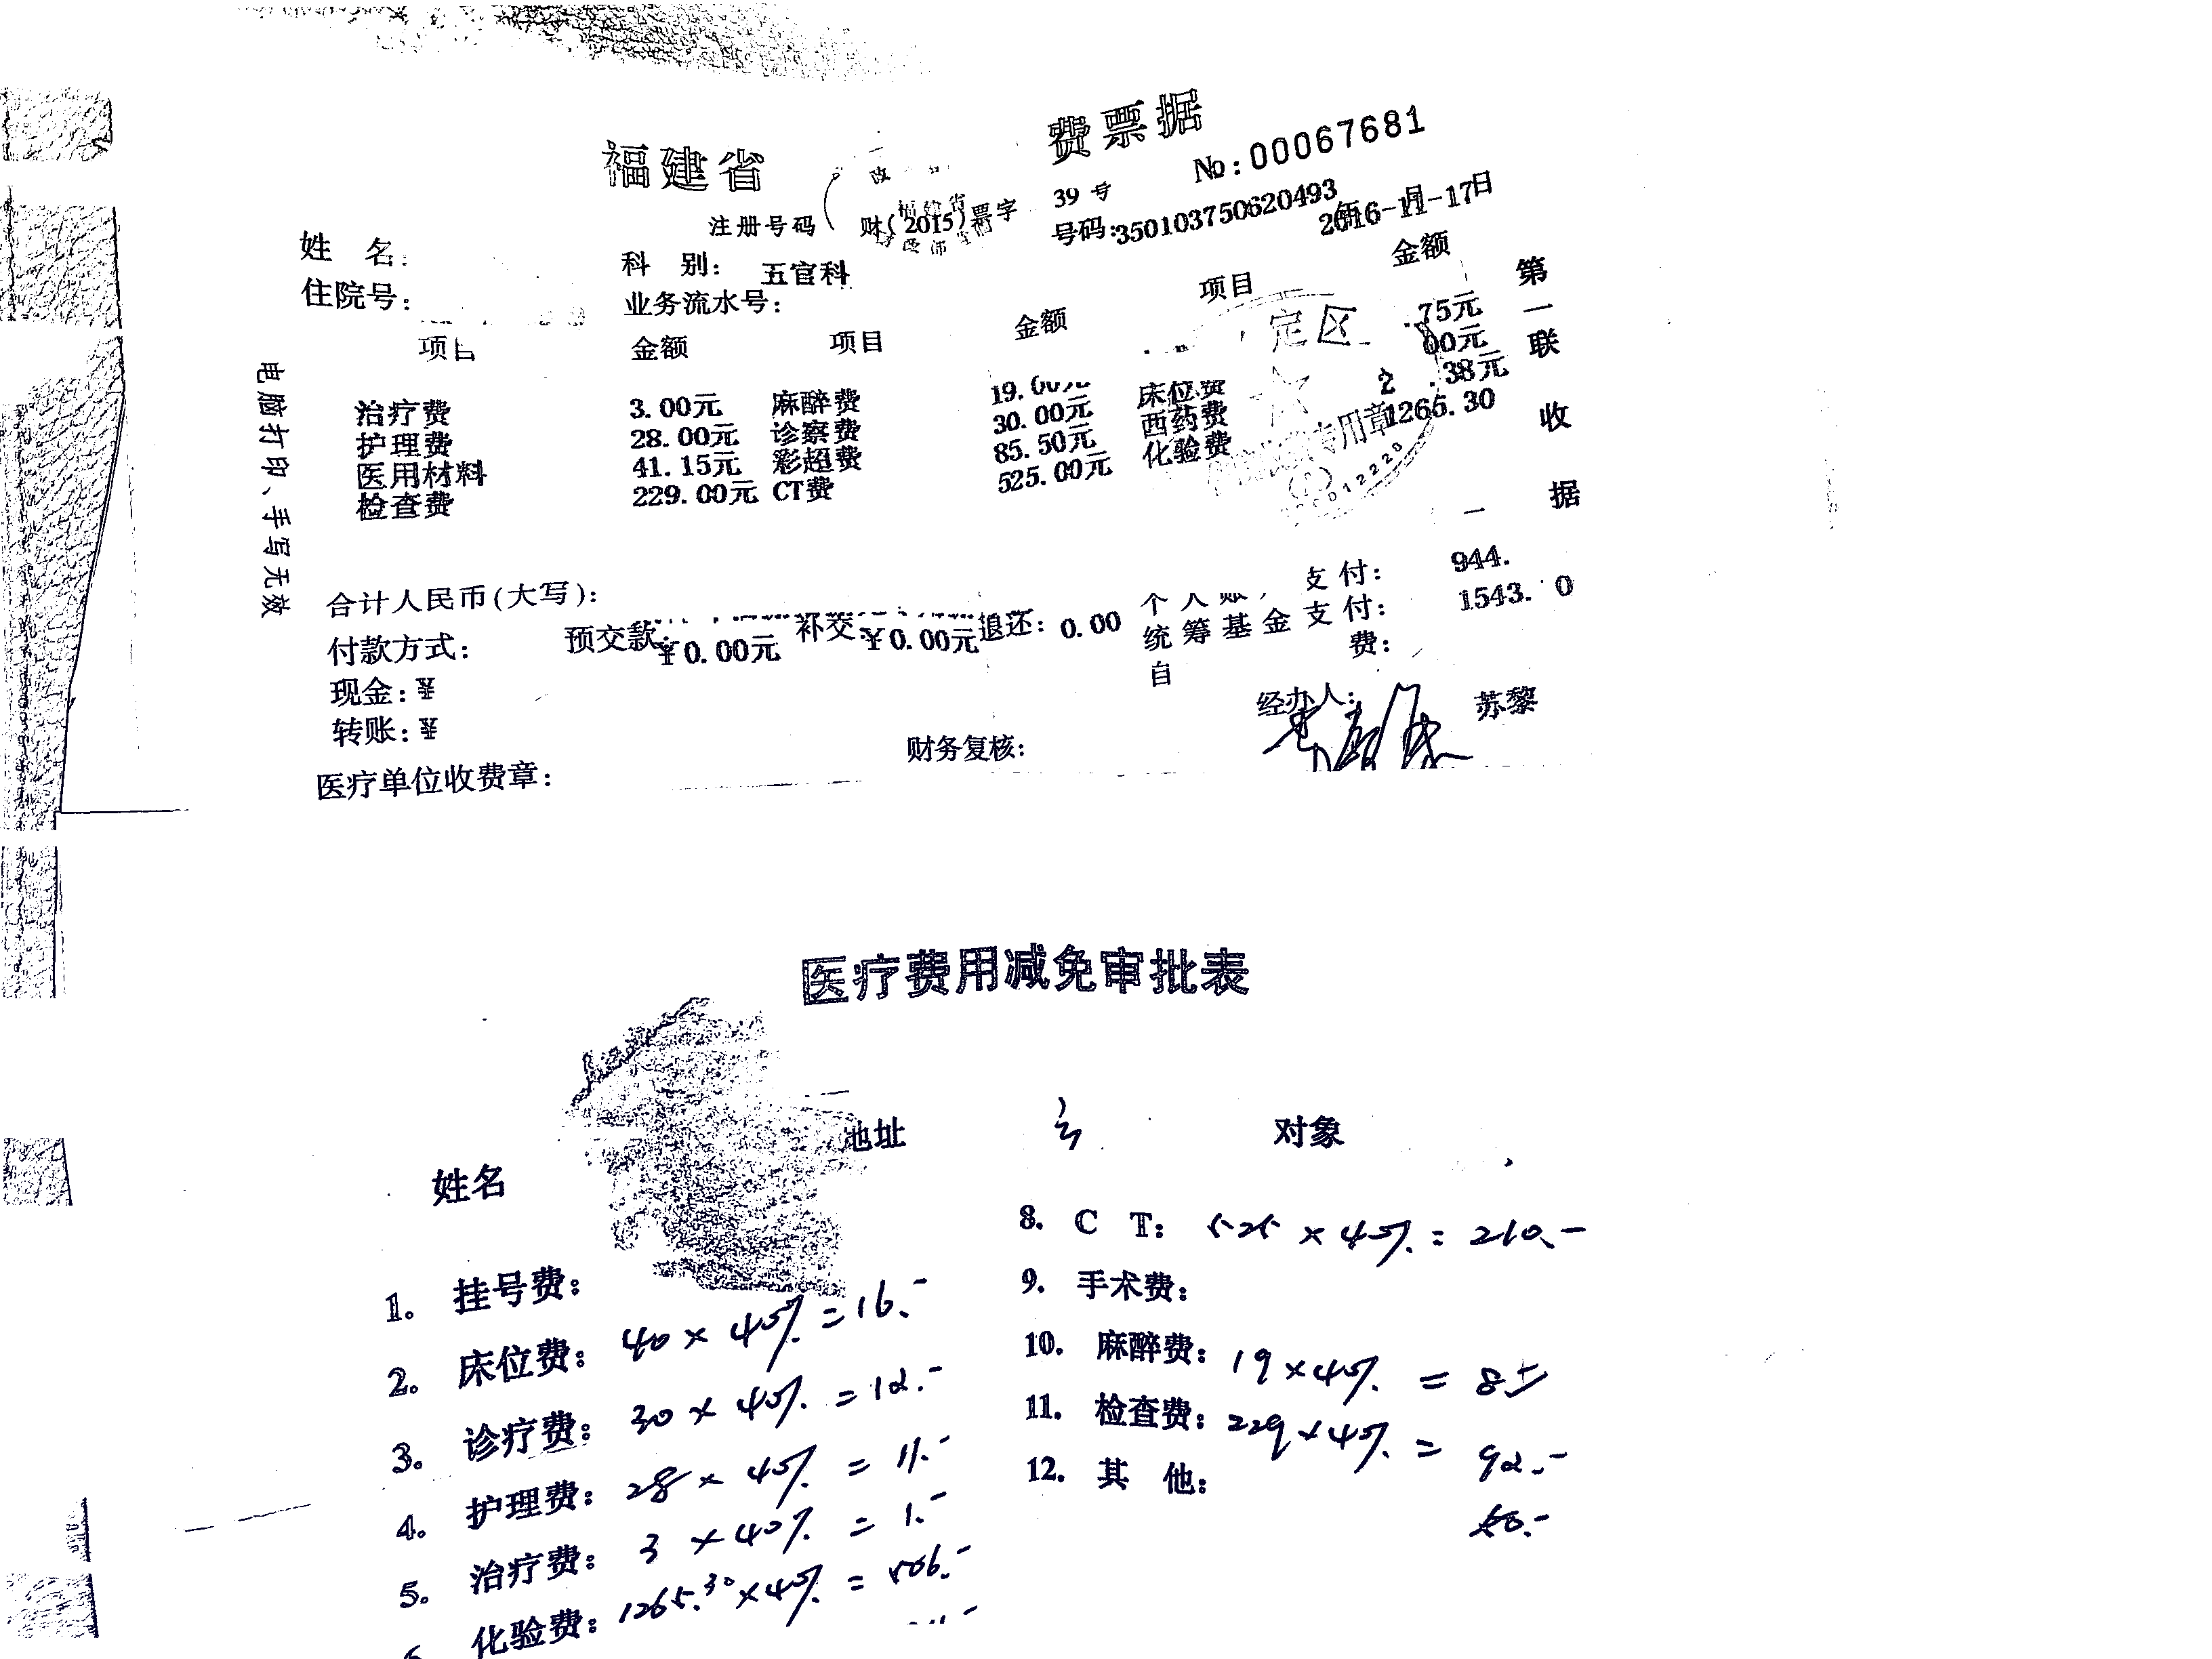 福建省 费票据
No:00067681
注册号码 财(2015)票字 39号
号码:350103750620493
2016-11-17日
姓 名:
科 别: 五官科
住院号:
业务流水号:
项目 金额 项目 金额 项目 金额
治疗费 3.00元 麻醉费 床位费 .75元
护理费 28.00元 诊察费 30.00元 西药费 00元
医用材料 41.15元 彩超费 85.50元 化验费 .38元
检查费 229.00元 CT费 525.00元 1265.30
定区
专用章
电脑打印、手写无效
第一联
收据
合计人民币(大写):
支付: 944.
付款方式: 预交款: ¥0.00元 补交: ¥0.00元 退还: 0.00 统筹基金支付: 1543. 0
现金:¥
自 费:
转账:¥
经办人: 苏黎
医疗单位收费章: 财务复核:
医疗费用减免审批表
姓名 地址 对象
1. 挂号费:
2. 床位费: 40×40%=16.-
3. 诊疗费: 30×40%=12.-
4. 护理费: 28×40%=11.-
5. 治疗费: 3×40%=1.-
化验费: 1265.30×40%=506.-
8. C T: 525×40%=210.-
9. 手术费:
10. 麻醉费: 19×40%=8.-
11. 检查费: 229×40%=92.-
12. 其 他: